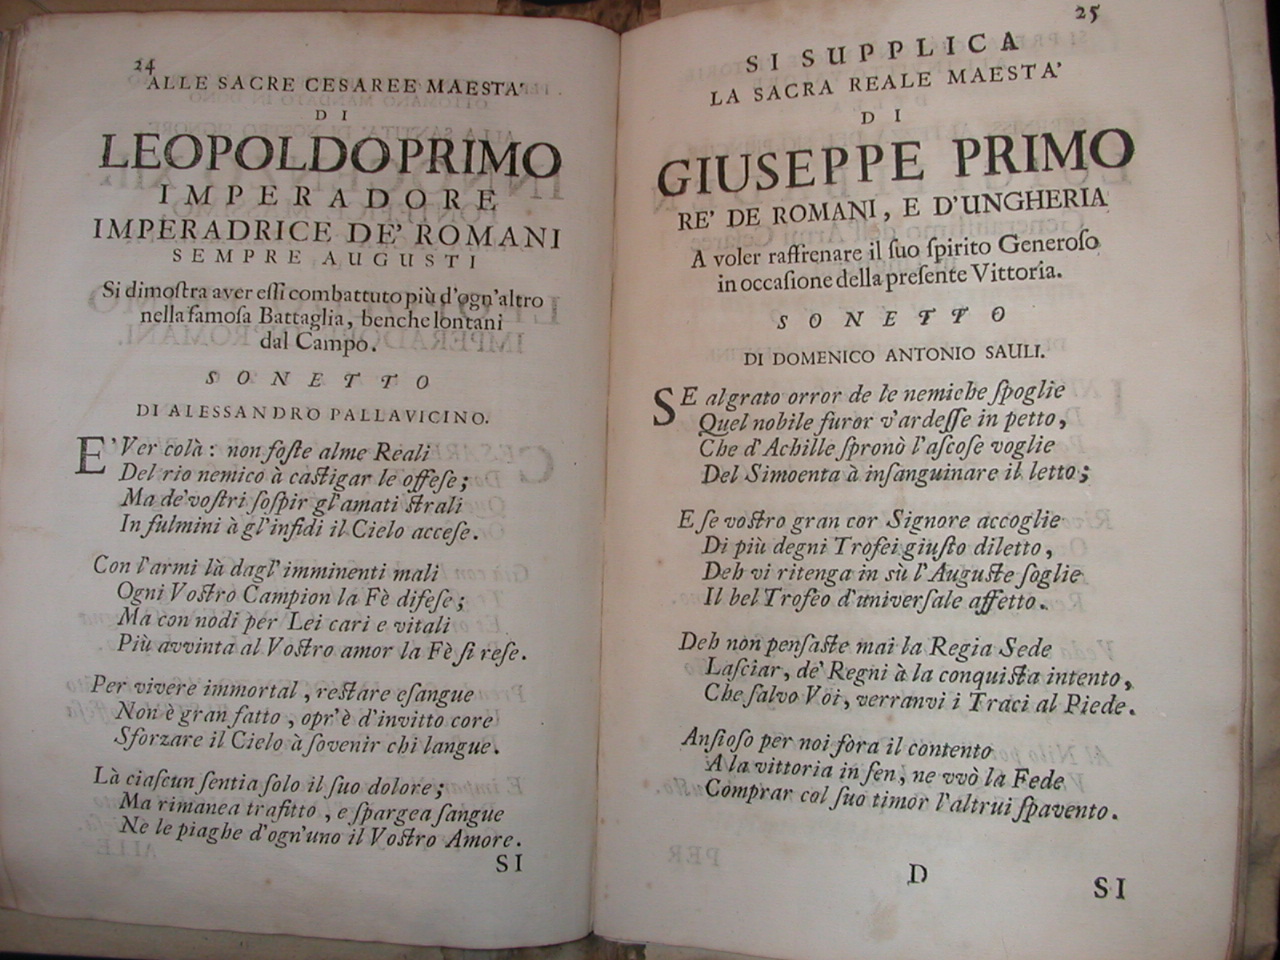 24
ALLE SACRE CESAREE MAESTA'
DI
LEOPOLDO PRIMO
IMPERADORE
IMPERADRICE DE' ROMANI
SEMPRE AUGUSTI
Si dimoſtra aver eſſi combattuto più d'ogn'altro
nella famoſa Battaglia, benche lontani
dal Campo.
SONETTO
DI ALESSANDRO PALLAVICINO.
E' Ver colà: non foſte alme Reali
Del rio nemico à caſtigar le offeſe;
Ma de' voſtri ſoſpir gl'amati ſtrali
In fulmini à gl'infidi il Cielo acceſe.
Con l'armi là dagl'imminenti mali
Ogni Voſtro Campion la Fè difeſe;
Ma con nodi per Lei cari e vitali
Più avvinta al Voſtro amor la Fè ſi reſe.
Per vivere immortal, reſtare eſangue
Non è gran fatto, opr'è d'invitto core
Sforzare il Cielo à ſovenir chi langue.
Là ciaſcun ſentia ſolo il ſuo dolore;
Ma rimanea trafitto, e ſpargea ſangue
Nè le piaghe d'ogn'uno il Voſtro Amore.
SI
25
SI SUPPLICA
LA SACRA REALE MAESTA'
DI
GIUSEPPE PRIMO
RE' DE ROMANI, E D'UNGHERIA
A voler raffrenare il ſuo ſpirito Generoſo
in occaſione della preſente Vittoria.
SONETTO
DI DOMENICO ANTONIO SAULI.
SE al grato orror de le nemiche ſpoglie
Quel nobile furor v'ardeſſe in petto,
Che d'Achille ſpronò l'aſcoſe voglie
Del Simoenta à inſanguinare il letto;
E ſe voſtro gran cor Signore accoglie
Di più degni Trofei giuſto diletto,
Deh vi ritenga in sù l'Auguſte ſoglie
Il bel Trofeo d'univerſale affetto.
Deh non penſaſte mai la Regia Sede
Laſciar, de' Regni à la conquiſta intento,
Che ſalvo Voi, verranvi i Traci al Piede.
Anſioſo per noi fora il contento
A la vittoria in ſen, ne vvò la Fede
Comprar col ſuo timor l'altrui ſpavento.
D
SI